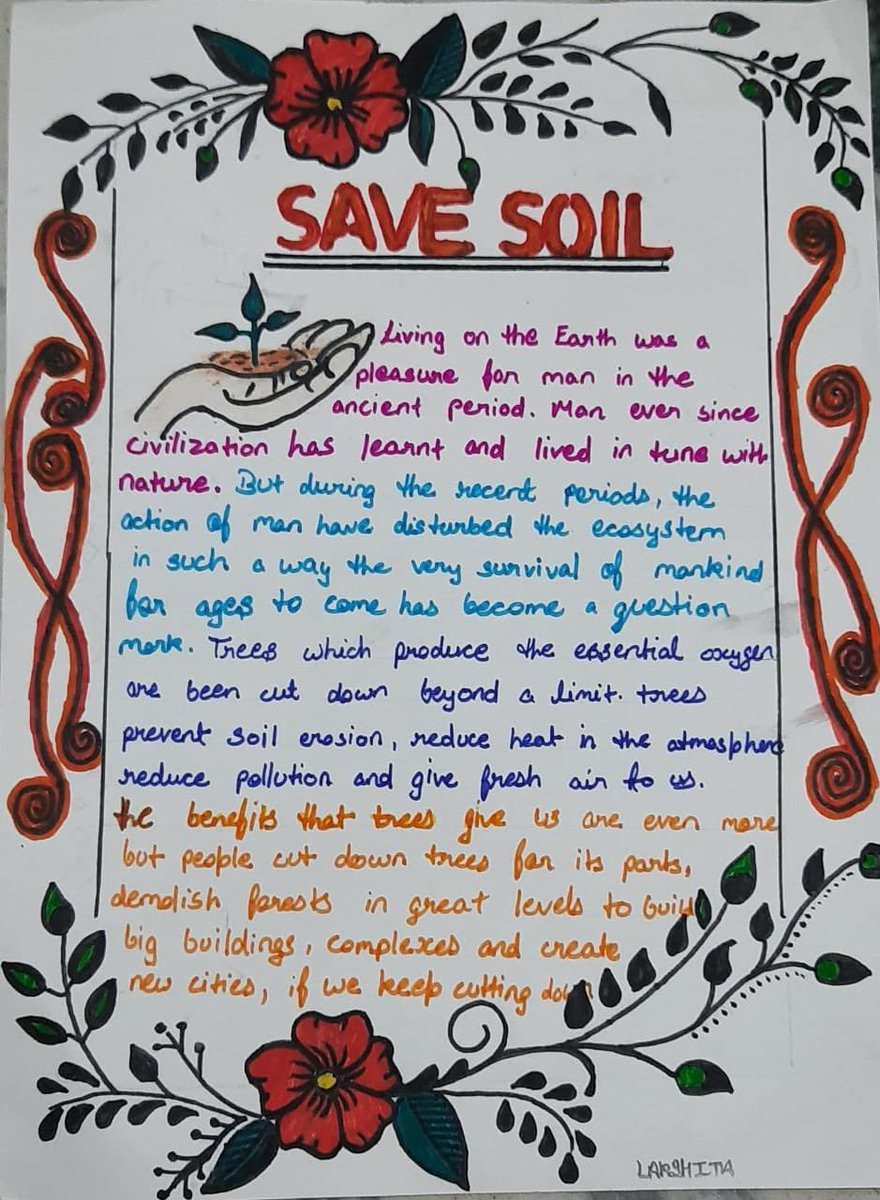 SAVE SOIL
Living on the Earth was a
pleasure for man in the
ancient period. Man ever since
civilization has learnt and lived in tune with
nature. But during the recent periods, the
action of man have disturbed the ecosystem
in such a way the very survival of mankind
for ages to come has become a question
mark. Trees which produce the essential oxygen
are been cut down beyond a limit. trees
prevent soil erosion, reduce heat in the atmosphere
reduce pollution and give fresh air to us.
the benefits that trees give us are even more
but people cut down trees for its parts,
demolish forests in great levels to build
big buildings, complexes and create
new cities, if we keep cutting down
LAKSHITA